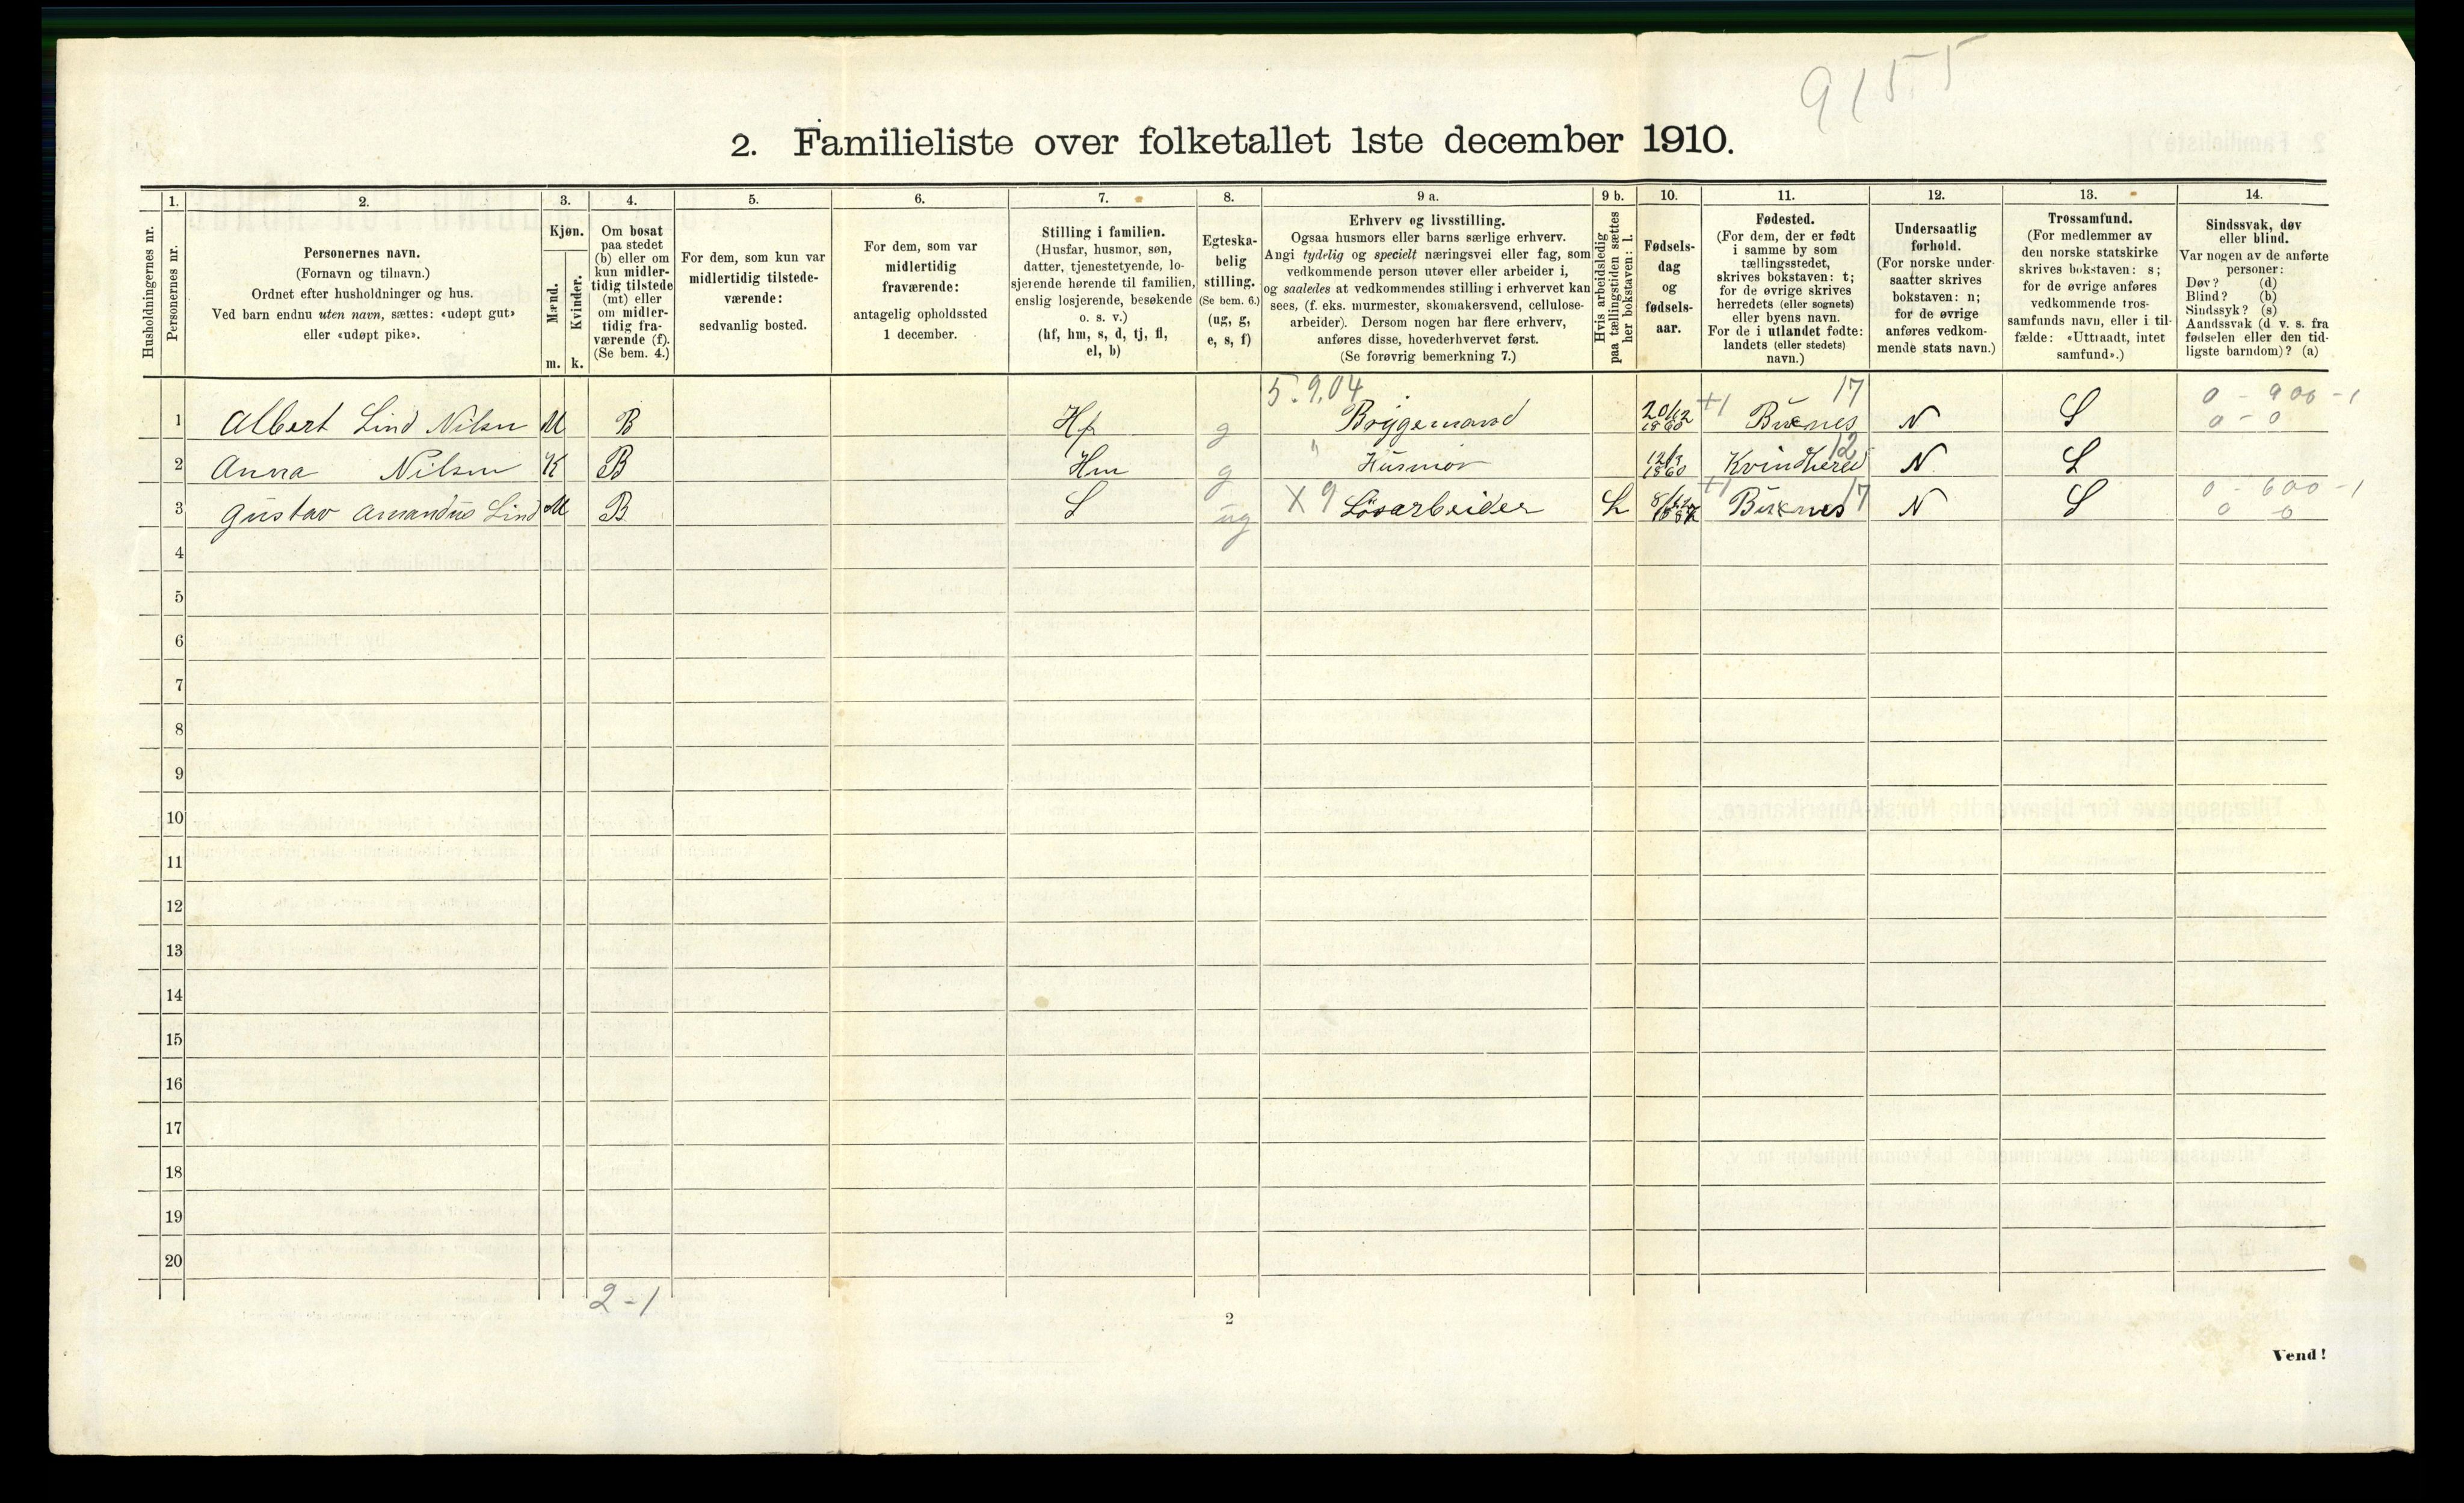 9155
2. Familieliste over folketallet 1ste december 1910.
Husholdningernes nr.
1.
Personernes nr.
2.
Personernes navn.
(Fornavn og tilnavn.)
Ordnet efter husholdninger og hus.
Ved barn endnu uten navn, sættes: «udøpt gut»
eller «udøpt pike».
3.
Kjøn.
Mænd.
Kvinder.
m. k.
4.
Om bosat
paa stedet
(b) eller om
kun midler-
tidig tilstede
(mt) eller
om midler-
tidig fra-
værende (f).
(Se bem. 4.)
5.
For dem, som kun var
midlertidig tilstede-
værende:
sedvanlig bosted.
6.
For dem, som var
midlertidig
fraværende:
antagelig opholdssted
1 december.
7.
Stilling i familien.
(Husfar, husmor, søn,
datter, tjenestetyende, lo-
sjerende hørende til familien,
enslig losjerende, besøkende
o. s. v.)
(hf, hm, s, d, tj, fl,
el, b)
8.
Egteska-
belig
stilling.
(Se bem. 6.)
(ug, g,
e, s, f)
9 a.
Erhverv og livsstilling.
Ogsaa husmors eller barns særlige erhverv.
Angi tydelig og specielt næringsvei eller fag, som
vedkommende person utøver eller arbeider i,
og saaledes at vedkommendes stilling i erhvervet kan
sees, (f. eks. murmester, skomakersvend, cellulose-
arbeider). Dersom nogen har flere erhverv,
anføres disse, hovederhvervet først.
(Se forøvrig bemerkning 7.)
9 b.
Hvis arbeidsledig
paa tællingstiden sættes
her bokstaven: l.
10.
Fødsels-
dag
og
fødsels-
aar.
11.
Fødested.
(For dem, der er født
i samme by som
tællingsstedet,
skrives bokstaven: t;
for de øvrige skrives
herredets (eller sognets)
eller byens navn.
For de i utlandet fødte:
landets (eller stedets)
navn.)
12.
Undersaatlig
forhold.
(For norske under-
saatter skrives
bokstaven: n;
for de øvrige
anføres vedkom-
mende stats navn.)
13.
Trossamfund.
(For medlemmer av
den norske statskirke
skrives bokstaven: s;
for de øvrige anføres
vedkommende tros-
samfunds navn, eller i til-
fælde: «Uttraadt, intet
samfund».)
14.
Sindssvak, døv
eller blind.
Var nogen av de anførte
personer:
Døv? (d)
Blind? (b)
Sindssyk? (s)
Aandssvak (d v. s. fra
fødselen eller den tid-
ligste barndom)? (a)
5.9.04 17 0 - 900 - 1
1 Albert Lind Nilsen M B Hf g Bryggemand 20/12 1860 +1 Buxnes N S 0 - 0
2 Anna Nilsen K B Hm g " Husmor 12/3 1860 Kvindherred 12 N S
3 Gustav Amandus Lind M B S ug X 9 Løsarbeider L 8/12 1887 +1 Buxnes 17 N S 0 - 600 - 1
0 0
4
5
6
7
8
9
10
11
12
13
14
15
16
17
18
19
20
2-1
2
Vend!